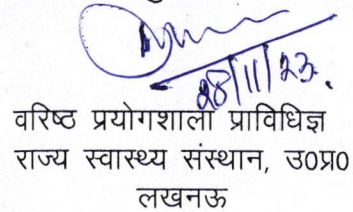 28/11/23.
वरिष्ठ प्रयोगशाला प्राविधिज्ञ
राज्य स्वास्थ्य संस्थान, उ0प्र0
लखनऊ